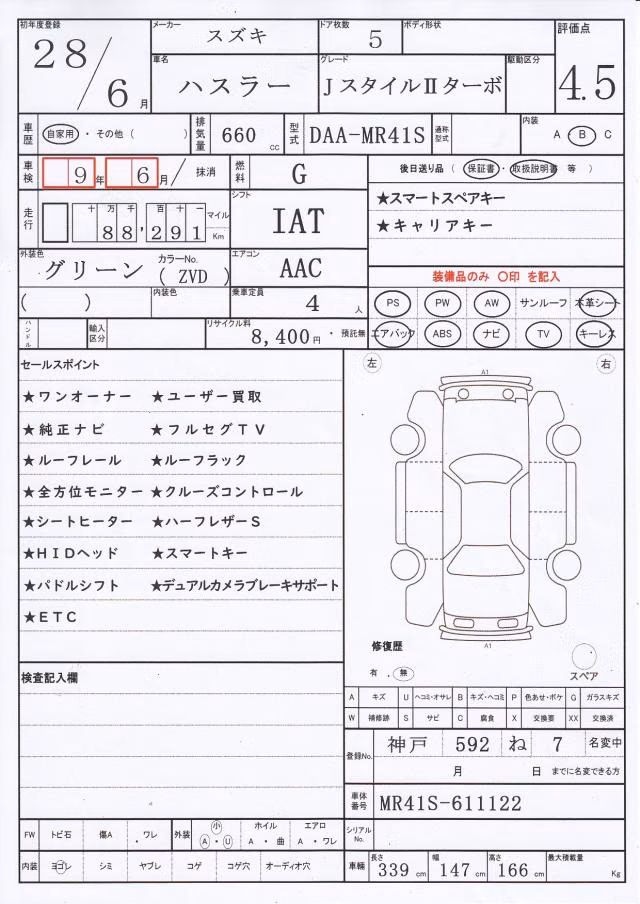 初年度登録 28/6月
メーカー スズキ ドア枚数 5 ボディ形状
車名 ハスラー グレード JスタイルⅡターボ 駆動区分
評価点 4.5
車歴 自家用・その他( ) 排気量 660cc 型式 DAA-MR41S 通称型式 内装 A・B C
車検 9年 6月/抹消 燃料 G
後日送り品 (保証書・取扱説明書 等)
★スマートスペアキー
★キャリアキー
走行 十万千百十一 88,291 マイル Km シフト IAT
外装色 グリーン カラーNo. (ZVD) エアコン AAC
装備品のみ 〇印 を記入
( ) 内装色 乗車定員 4人
PS PW AW サンルーフ 本革シート
エアバック ABS ナビ TV キーレス
ハンドル 輸入区分 リサイクル料 8,400円・預託無
セールスポイント
★ワンオーナー ★ユーザー買取
★純正ナビ ★フルセグTV
★ルーフレール ★ルーフラック
★全方位モニター ★クルーズコントロール
★シートヒーター ★ハーフレザーS
★HIDヘッド ★スマートキー
★パドルシフト ★デュアルカメラブレーキサポート
★ETC
左 右
A1
A1
修復歴
有 . 無
スペア
検査記入欄
A キズ U ヘコミ・オサレ B キズ・ヘコミ P 色あせ・ボケ G ガラスキズ
W 補修跡 S サビ C 腐食 X 交換要 XX 交換済
登録No. 神戸 592 ね 7 名変中
月 日 までに名変できる方
車体番号 MR41S-611122
シリアルNo.
FW トビ石 傷A ・ワレ 外装 小 A・U ホイル A・曲 エアロ A・ワレ
内装 ヨゴレ シミ ヤブレ コゲ コゲ穴 オーディオ穴
車輌 長さ 339cm 幅 147cm 高さ 166cm 最大積載量 Kg